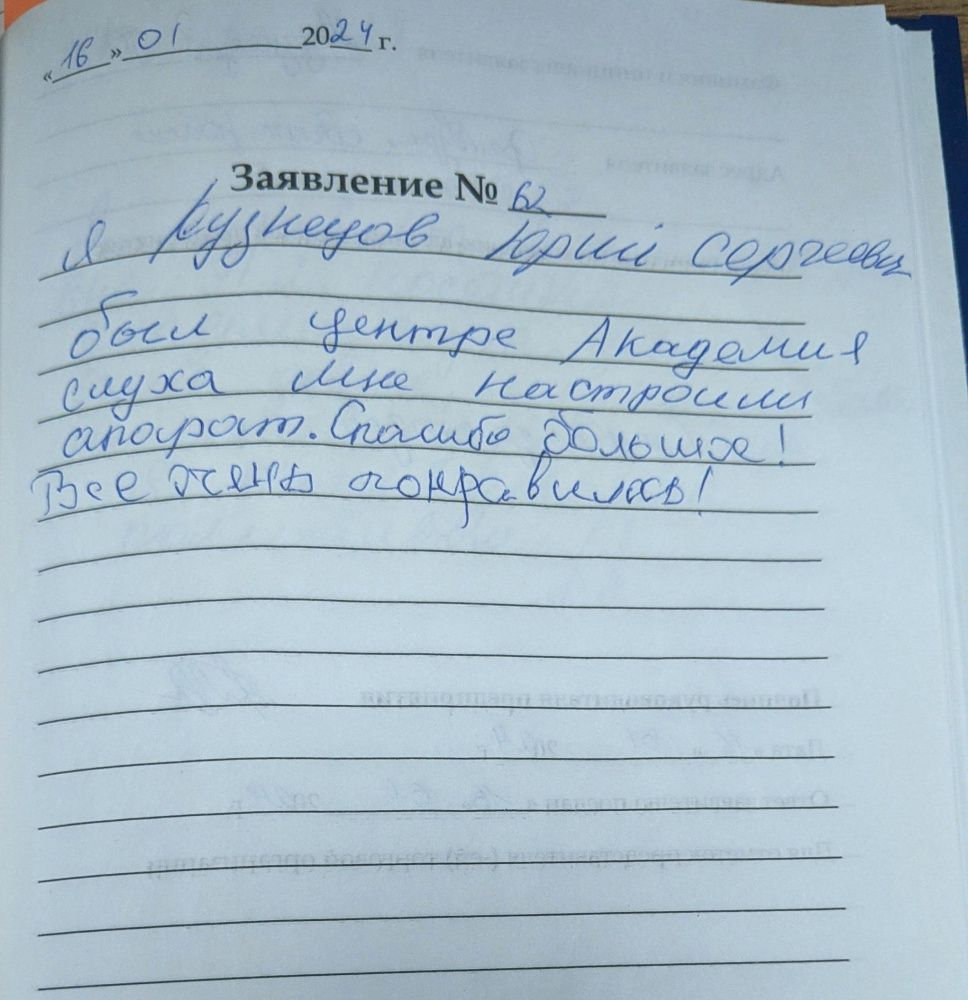 «16» 01 2024 г.
Заявление № 62
Я Кузнецов Юрий Сергеевич
был центре Академия
слуха мне настроили
апорат. Спасибо большое!
Все очень понравилось!